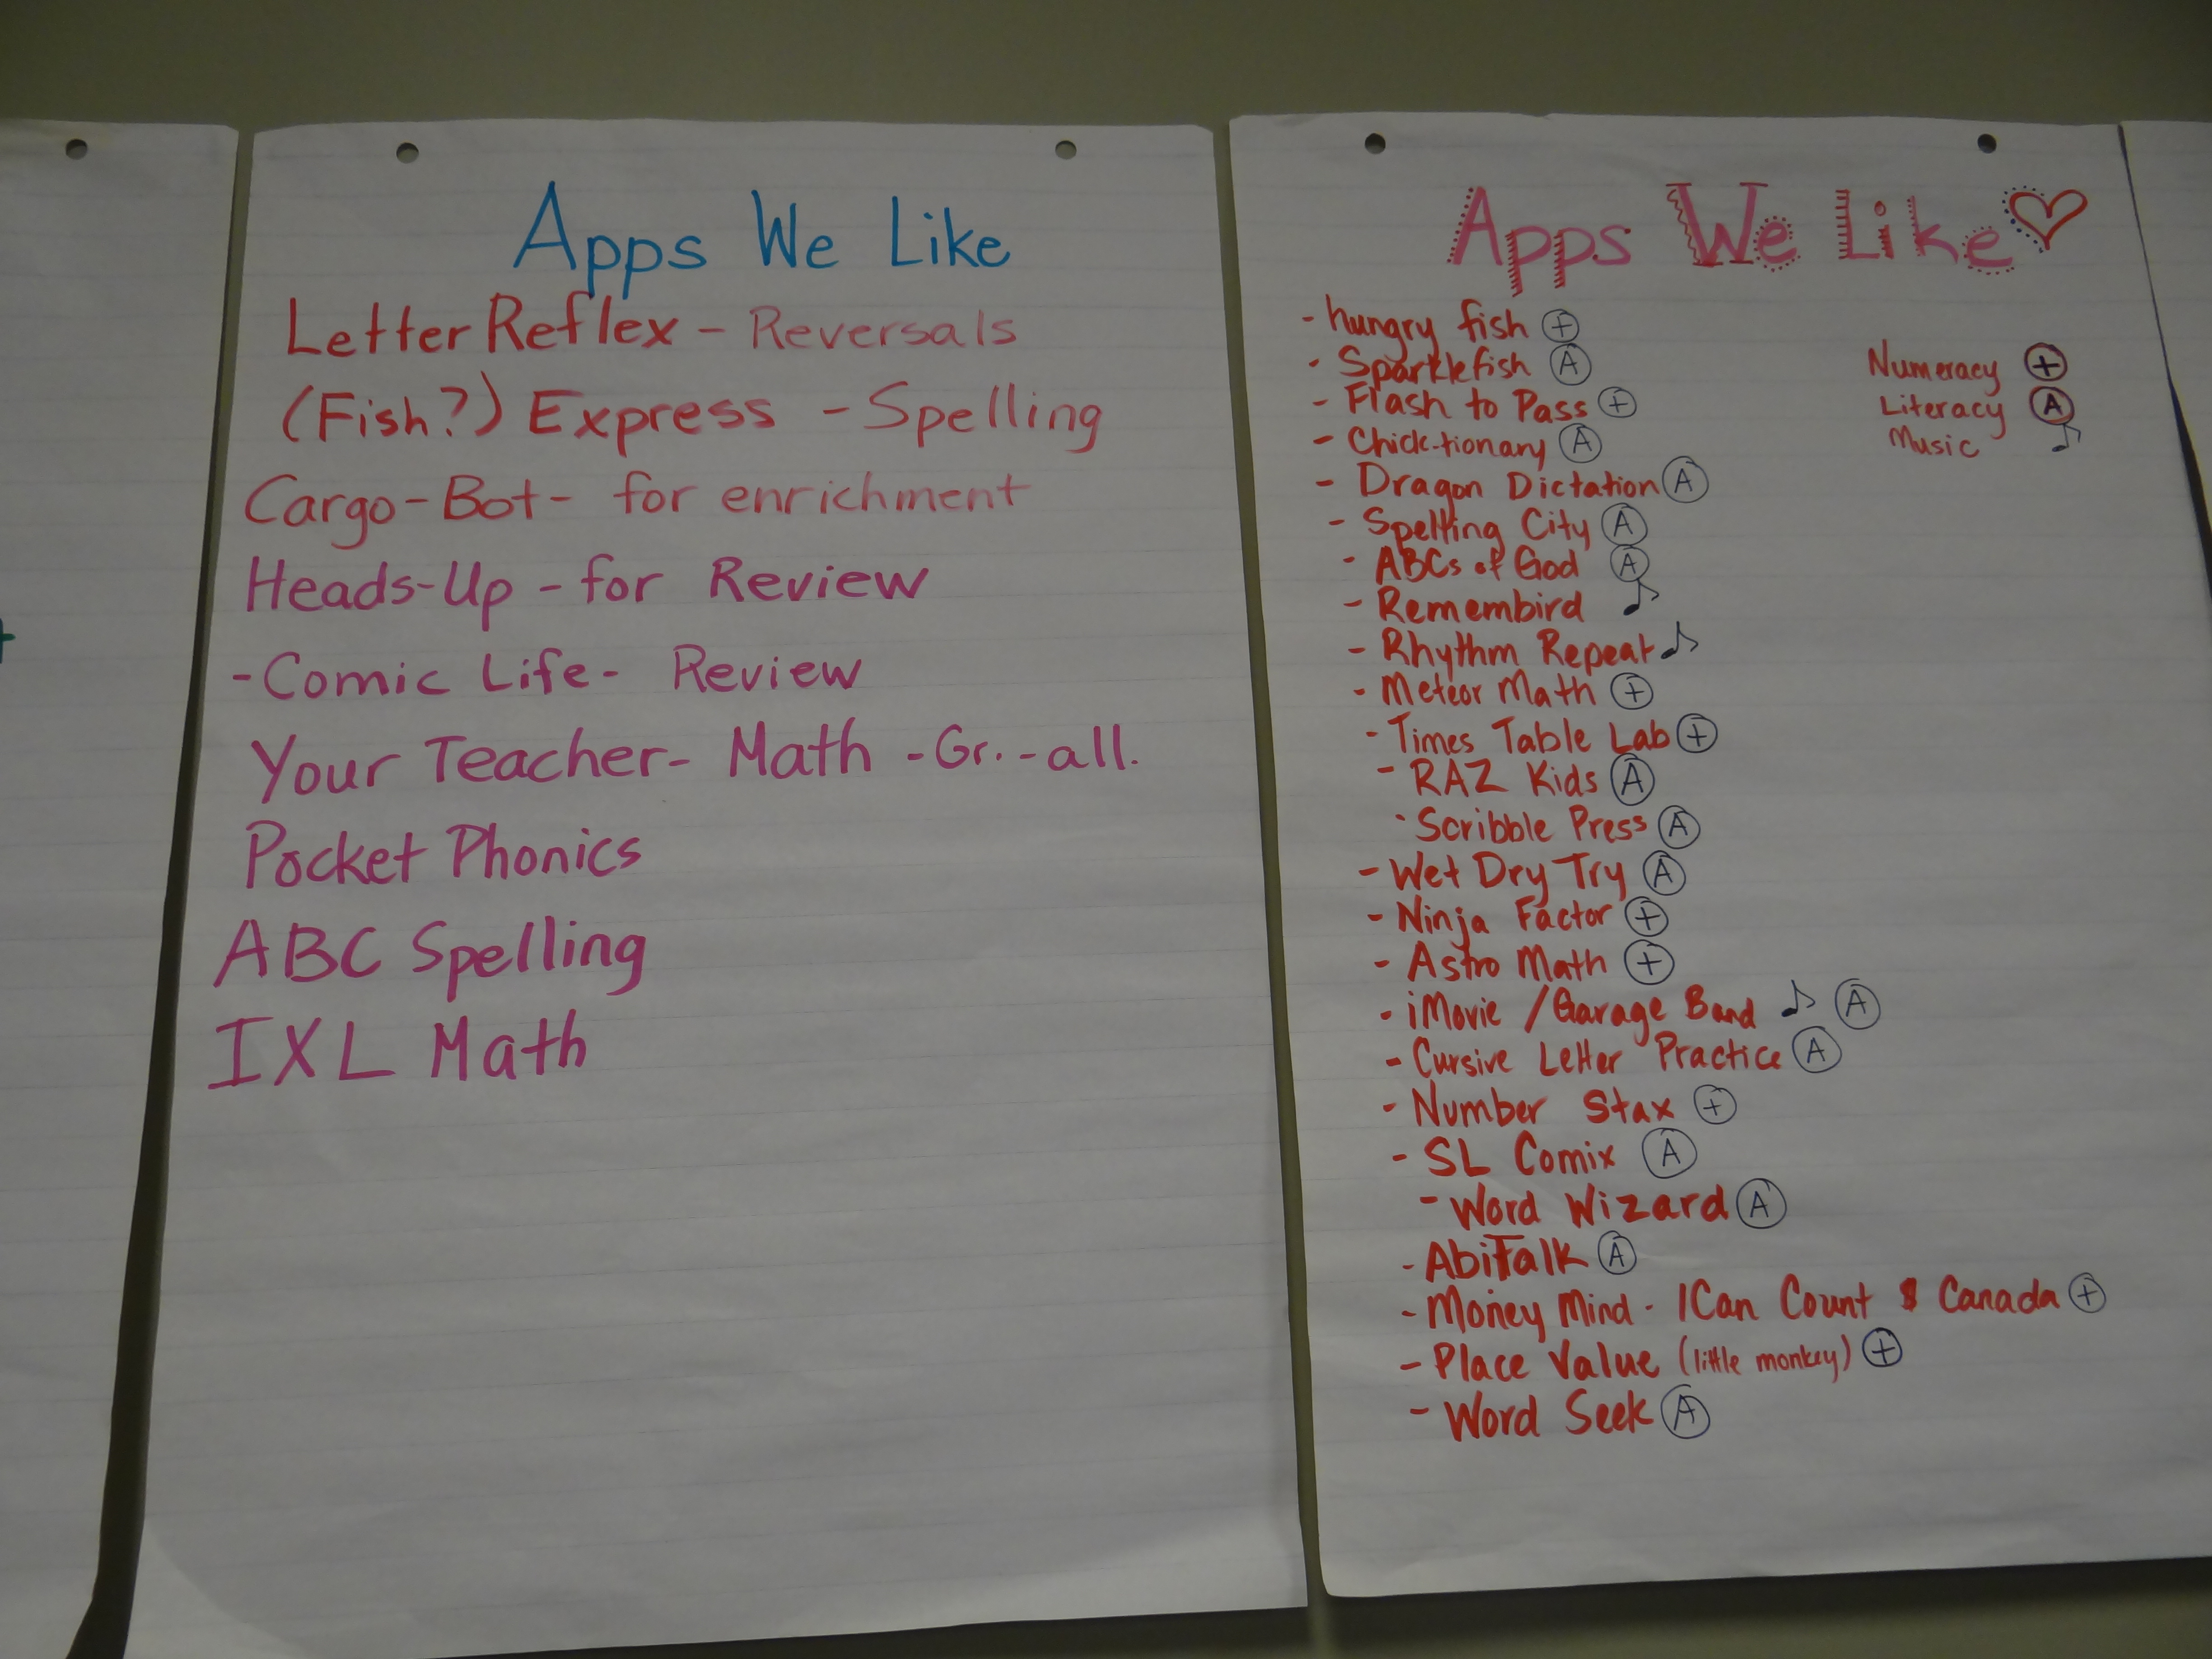 Apps We Like
Letter Reflex - Reversals
(Fish?) Express - Spelling
Cargo-Bot- for enrichment
Heads-Up - for Review
-Comic Life- Review
Your Teacher- Math -Gr.-all.
Pocket Phonics
ABC Spelling
IXL Math
Apps We Like ♡
- hungry fish ⊕
- Sparklefish Ⓐ
- Flash to Pass ⊕
- Chick-tionary Ⓐ
- Dragon Dictation Ⓐ
- Spelling City Ⓐ
- ABCs of God Ⓐ
- Remembird ♪
- Rhythm Repeat ♪
- Meteor Math ⊕
- Times Table Lab ⊕
- RAZ Kids Ⓐ
- Scribble Press Ⓐ
- Wet Dry Try Ⓐ
- Ninja Factor ⊕
- Astro Math ⊕
- iMovie / Garage Band ♪ Ⓐ
- Cursive Letter Practice Ⓐ
- Number Stax ⊕
- SL Comix Ⓐ
- Word Wizard Ⓐ
- AbiTalk Ⓐ
- Money Mind - ICan Count $ Canada ⊕
- Place Value (little monkey) ⊕
- Word Seek Ⓐ
Numeracy ⊕
Literacy Ⓐ
Music ♪